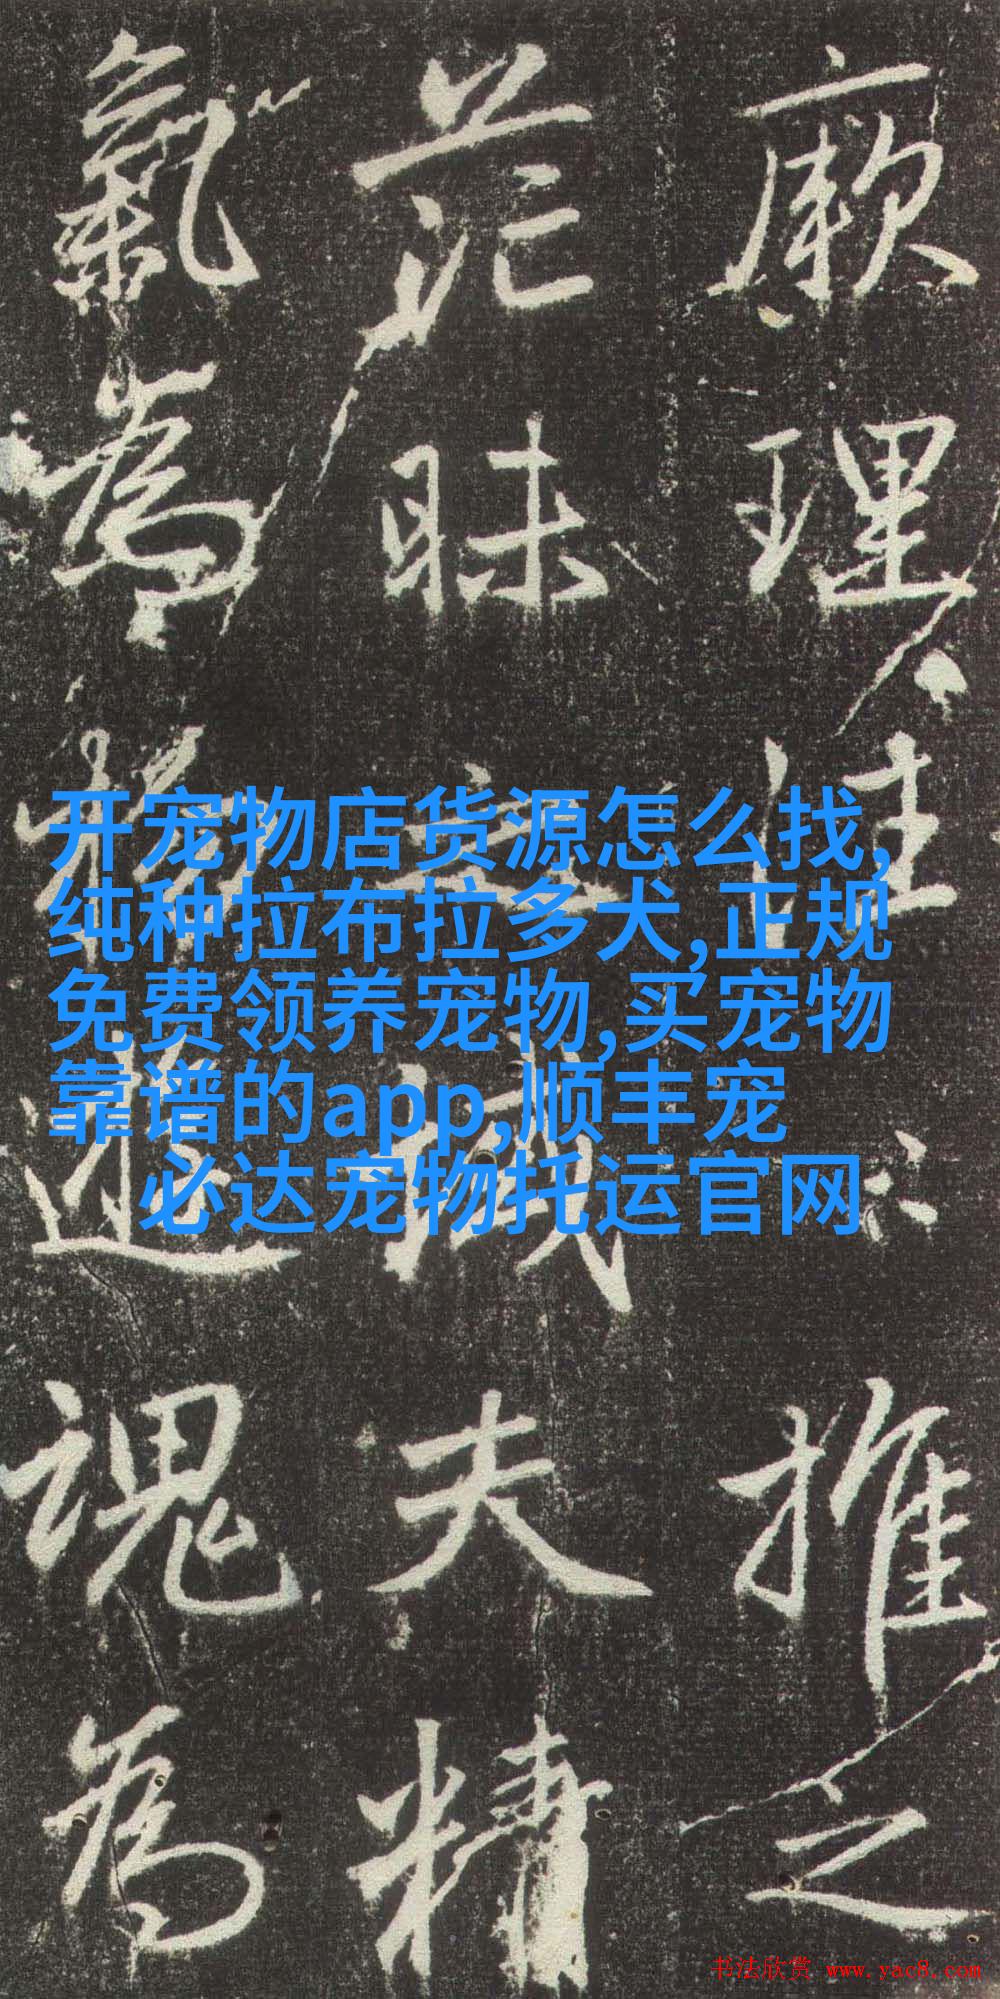 厥理推之
茫昧之域夫精
氣為物遊魂為
开宠物店货源怎么找,
纯种拉布拉多犬,正规
免费领养宠物,买宠物
靠谱的app,顺丰宠
必达宠物托运官网
书法欣赏 www.yac8.com